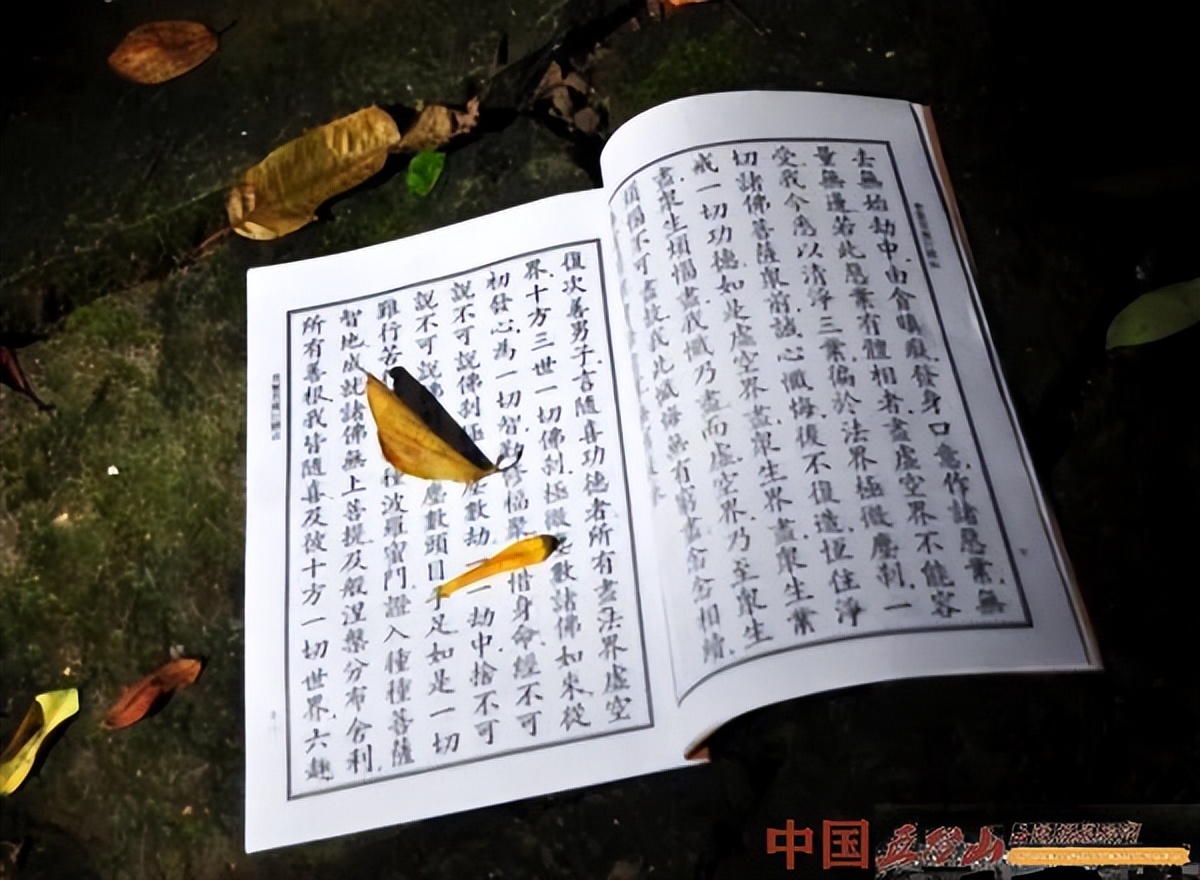 去無始劫中,由貪瞋癡,發身口意,作諸惡業,無
量無邊,若此惡業有體相者,盡虛空界不能容
受,我今悉以清淨三業,徧於法界極微塵剎,一
切諸佛菩薩眾前,誠心懺悔,後不復造,恆住淨
戒一切功德,如是虛空界盡,眾生界盡,眾生業
盡,眾生煩惱盡,我懺乃盡,而虛空界,乃至眾生
煩惱不可盡故,我此懺悔無有窮盡,念念相續,
復次善男子,言隨喜功德者,所有盡法界虛空
界,十方三世一切佛剎,極微塵數諸佛如來,從
初發心,為一切智,勤修福聚,惜身命,經不可
說不可說佛剎極塵數劫,一劫中,捨不可
說不可說佛塵數頭目手足,如是一切
難行苦種波羅蜜門,證入種種菩薩
智地,成就諸佛無上菩提,及般涅槃,分布舍利,
所有善根,我皆隨喜,及彼十方一切世界,六趣
中国五台山